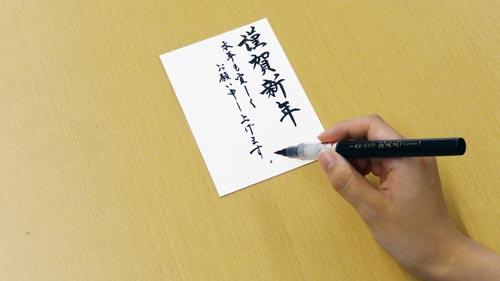 謹賀新年
本年も宜しく
お願い申し上げます。